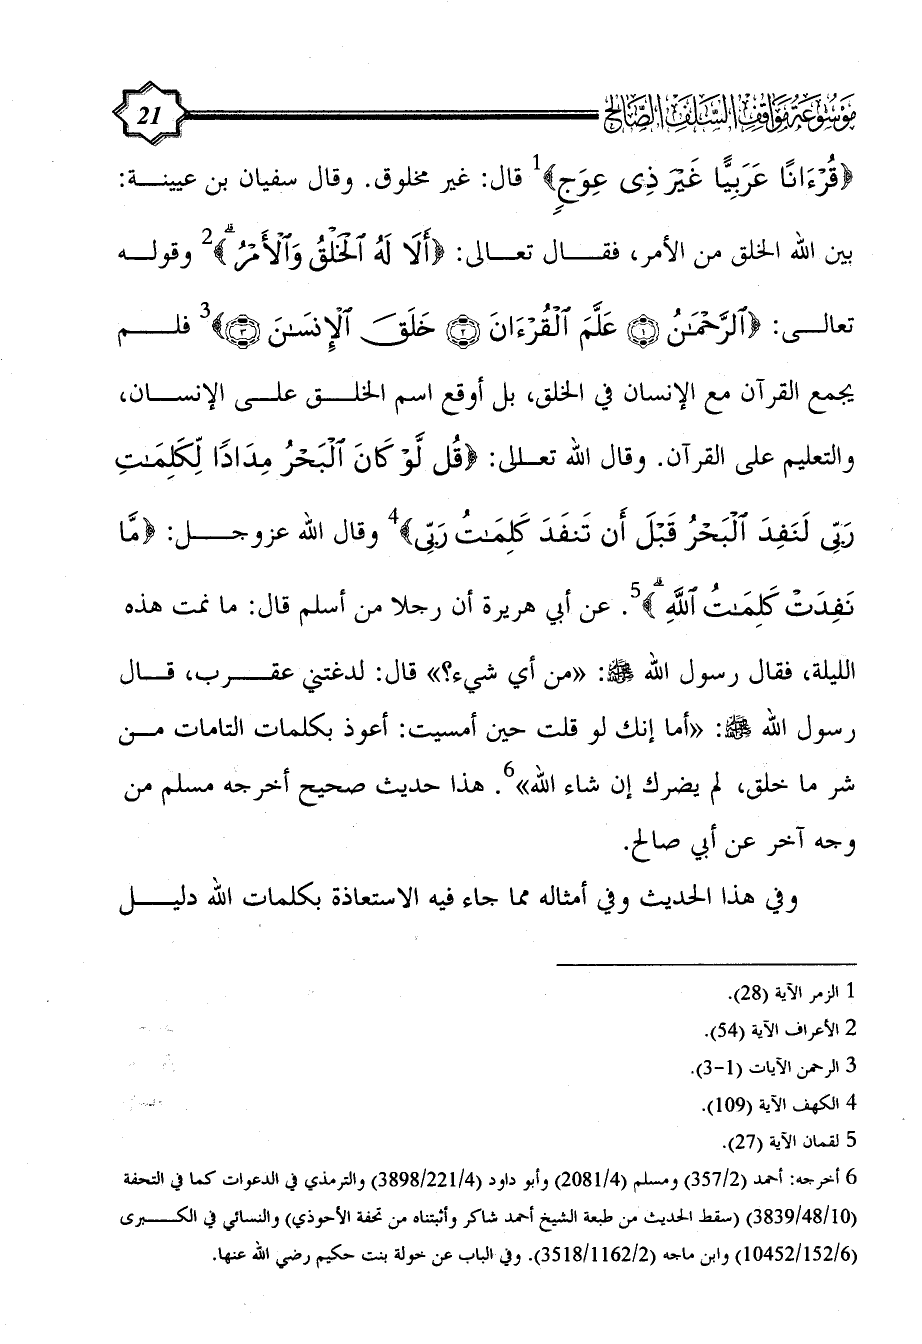 موسوعة مواقف السلف الصالح
21
﴿قُرْءَانًا عَرَبِيًّا غَيْرَ ذِى عِوَجٍ﴾1 قال: غير مخلوق. وقال سفيان بن عيينة:
بين الله الخلق من الأمر، فقال تعالى: ﴿أَلَا لَهُ ٱلْخَلْقُ وَٱلْأَمْرُ ۗ﴾2 وقوله
تعالى: ﴿ٱلرَّحْمَٰنُ ۝١ عَلَّمَ ٱلْقُرْءَانَ ۝٢ خَلَقَ ٱلْإِنسَٰنَ ۝٣﴾3 فلم
يجمع القرآن مع الإنسان في الخلق، بل أوقع اسم الخلق على الإنسان،
والتعليم على القرآن. وقال الله تعالى: ﴿قُل لَّوْ كَانَ ٱلْبَحْرُ مِدَادًا لِّكَلِمَٰتِ
رَبِّى لَنَفِدَ ٱلْبَحْرُ قَبْلَ أَن تَنفَدَ كَلِمَٰتُ رَبِّى﴾4 وقال الله عزوجل: ﴿مَّا
نَفِدَتْ كَلِمَٰتُ ٱللَّهِ ۗ﴾5. عن أبي هريرة أن رجلا من أسلم قال: ما نمت هذه
الليلة، فقال رسول الله ﷺ: «من أي شيء؟» قال: لدغتني عقرب، قال
رسول الله ﷺ: «أما إنك لو قلت حين أمسيت: أعوذ بكلمات التامات من
شر ما خلق، لم يضرك إن شاء الله»6. هذا حديث صحيح أخرجه مسلم من
وجه آخر عن أبي صالح.
وفي هذا الحديث وفي أمثاله مما جاء فيه الاستعاذة بكلمات الله دليل
1 الزمر الآية (28).
2 الأعراف الآية (54).
3 الرحمن الآيات (1-3).
4 الكهف الآية (109).
5 لقمان الآية (27).
6 أخرجه: أحمد (357/2) ومسلم (2081/4) وأبو داود (3898/221/4) والترمذي في الدعوات كما في التحفة
(3839/48/10) (سقط الحديث من طبعة الشيخ أحمد شاكر وأثبتناه من تحفة الأحوذي) والنسائي في الكبرى
(10452/152/6) وابن ماجه (3518/1162/2). وفي الباب عن خولة بنت حكيم رضي الله عنها.